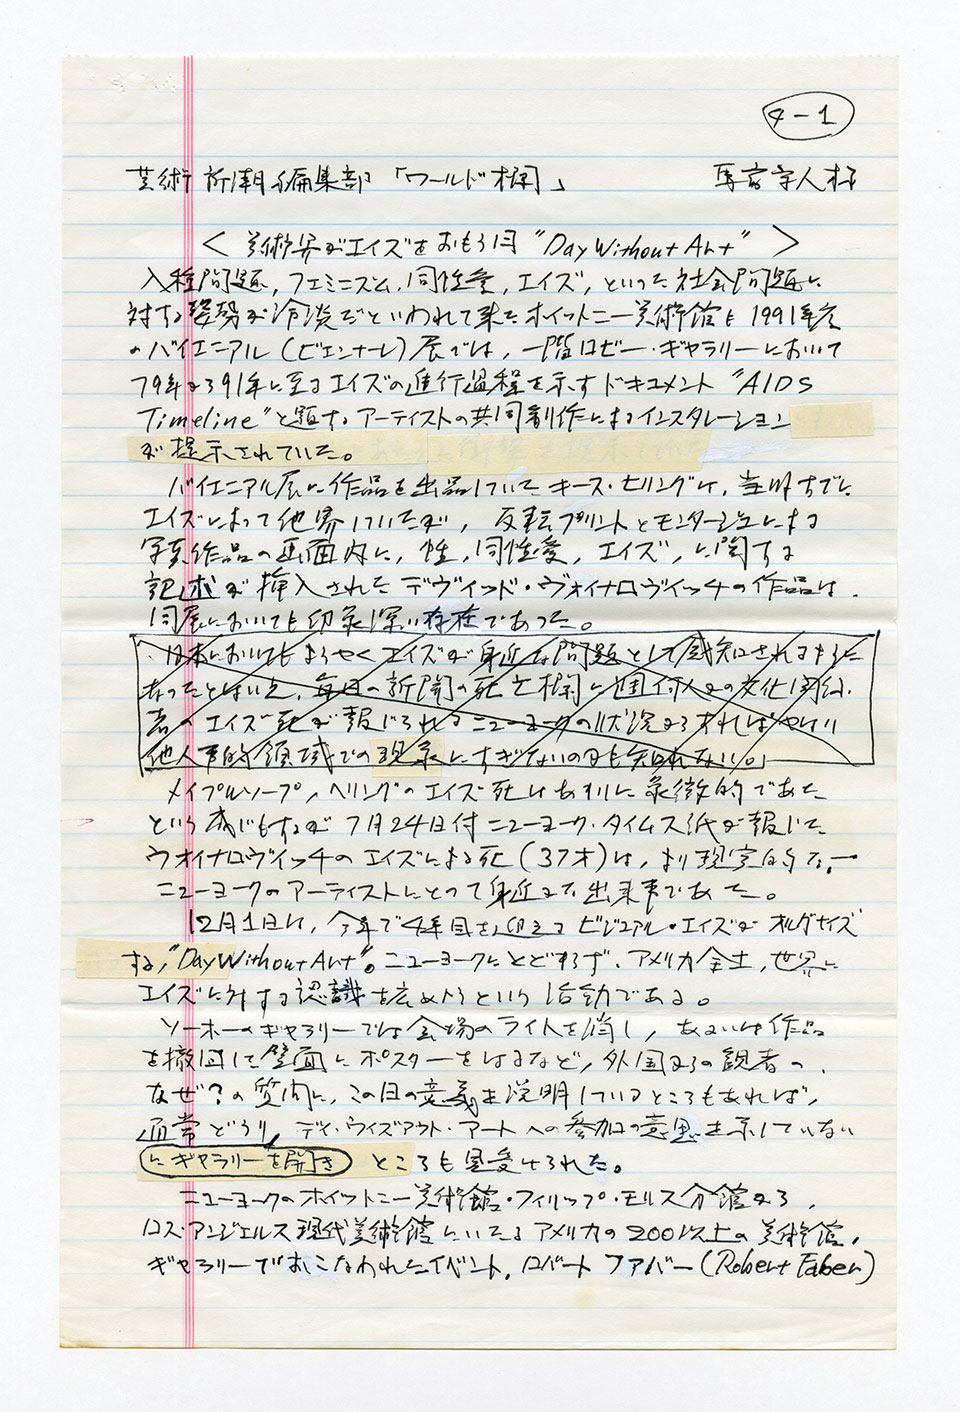 4-1
芸術新潮編集部「ワールド欄」
<美術界がエイズをおもう日 "Day Without Art">
人種問題, フェミニズム, 同性愛, エイズ, といった社会問題に
対する姿勢が冷淡だといわれて来たホイットニー美術館も1991年度
のバイエニアル(ビエンナーレ)展では, 一階ロビー・ギャラリーにおいて
79年から91年に至るエイズの進行過程を示すドキュメント "AIDS
Timeline"と題するアーティストの共同創作によるインスタレーション
が提示されていた。
バイエニアル展に作品を出品していたキース・ヒリングは, 当時すでに
エイズによって他界していたが, 反転プリントとモンタージュによる
写真作品の画面内に, 性, 同性愛, エイズ, に関する
記述が挿入されたデヴィッド・ヴォイナロヴィッチの作品は,
同展においても印象深い存在であった。
日本においてもようやくエイズが身近な問題として感知されるように
なったとはいえ, 毎日の新聞の死亡欄に週何人かの文化関係
者のエイズ死が報じられるニューヨークの状況からすればやはり
他人事的領域での現象にすぎないのかも知れない。
メイプルソープ, ヘリングのエイズ死はあまりに象徴的であった
という感じもするが 7月24日付ニューヨーク・タイムス紙が報じた
ウォイナロヴィッチのエイズによる死(37才)は, より現実的な,
ニューヨークのアーティストにとって身近な出来事であった。
12月1日に, 今年で4年目を迎えるビジュアル・エイズがオルガナイズ
する, "Day Without Art"。ニューヨークにとどまらず, アメリカ全土, 世界に
エイズに対する認識を広めようという活動である。
ソーホーのギャラリーでは会場のライトを消し, あるいは作品
を撤回して壁面にポスターをはるなど, 外国からの観者の,
なぜ?の質問に, この日の意義を説明しているところもあれば,
通常どうり, デイ・ウィズアウト・アートへの参加の意思を示していない
にギャラリーを開き ところも見受けられた。
ニューヨークのホイットニー美術館・フィリップ・モリス分館から,
ロス・アンジェルス現代美術館にいたるアメリカの200以上の美術館,
ギャラリーでおこなわれたイベント, ロバート ファバー (Robert Faber)